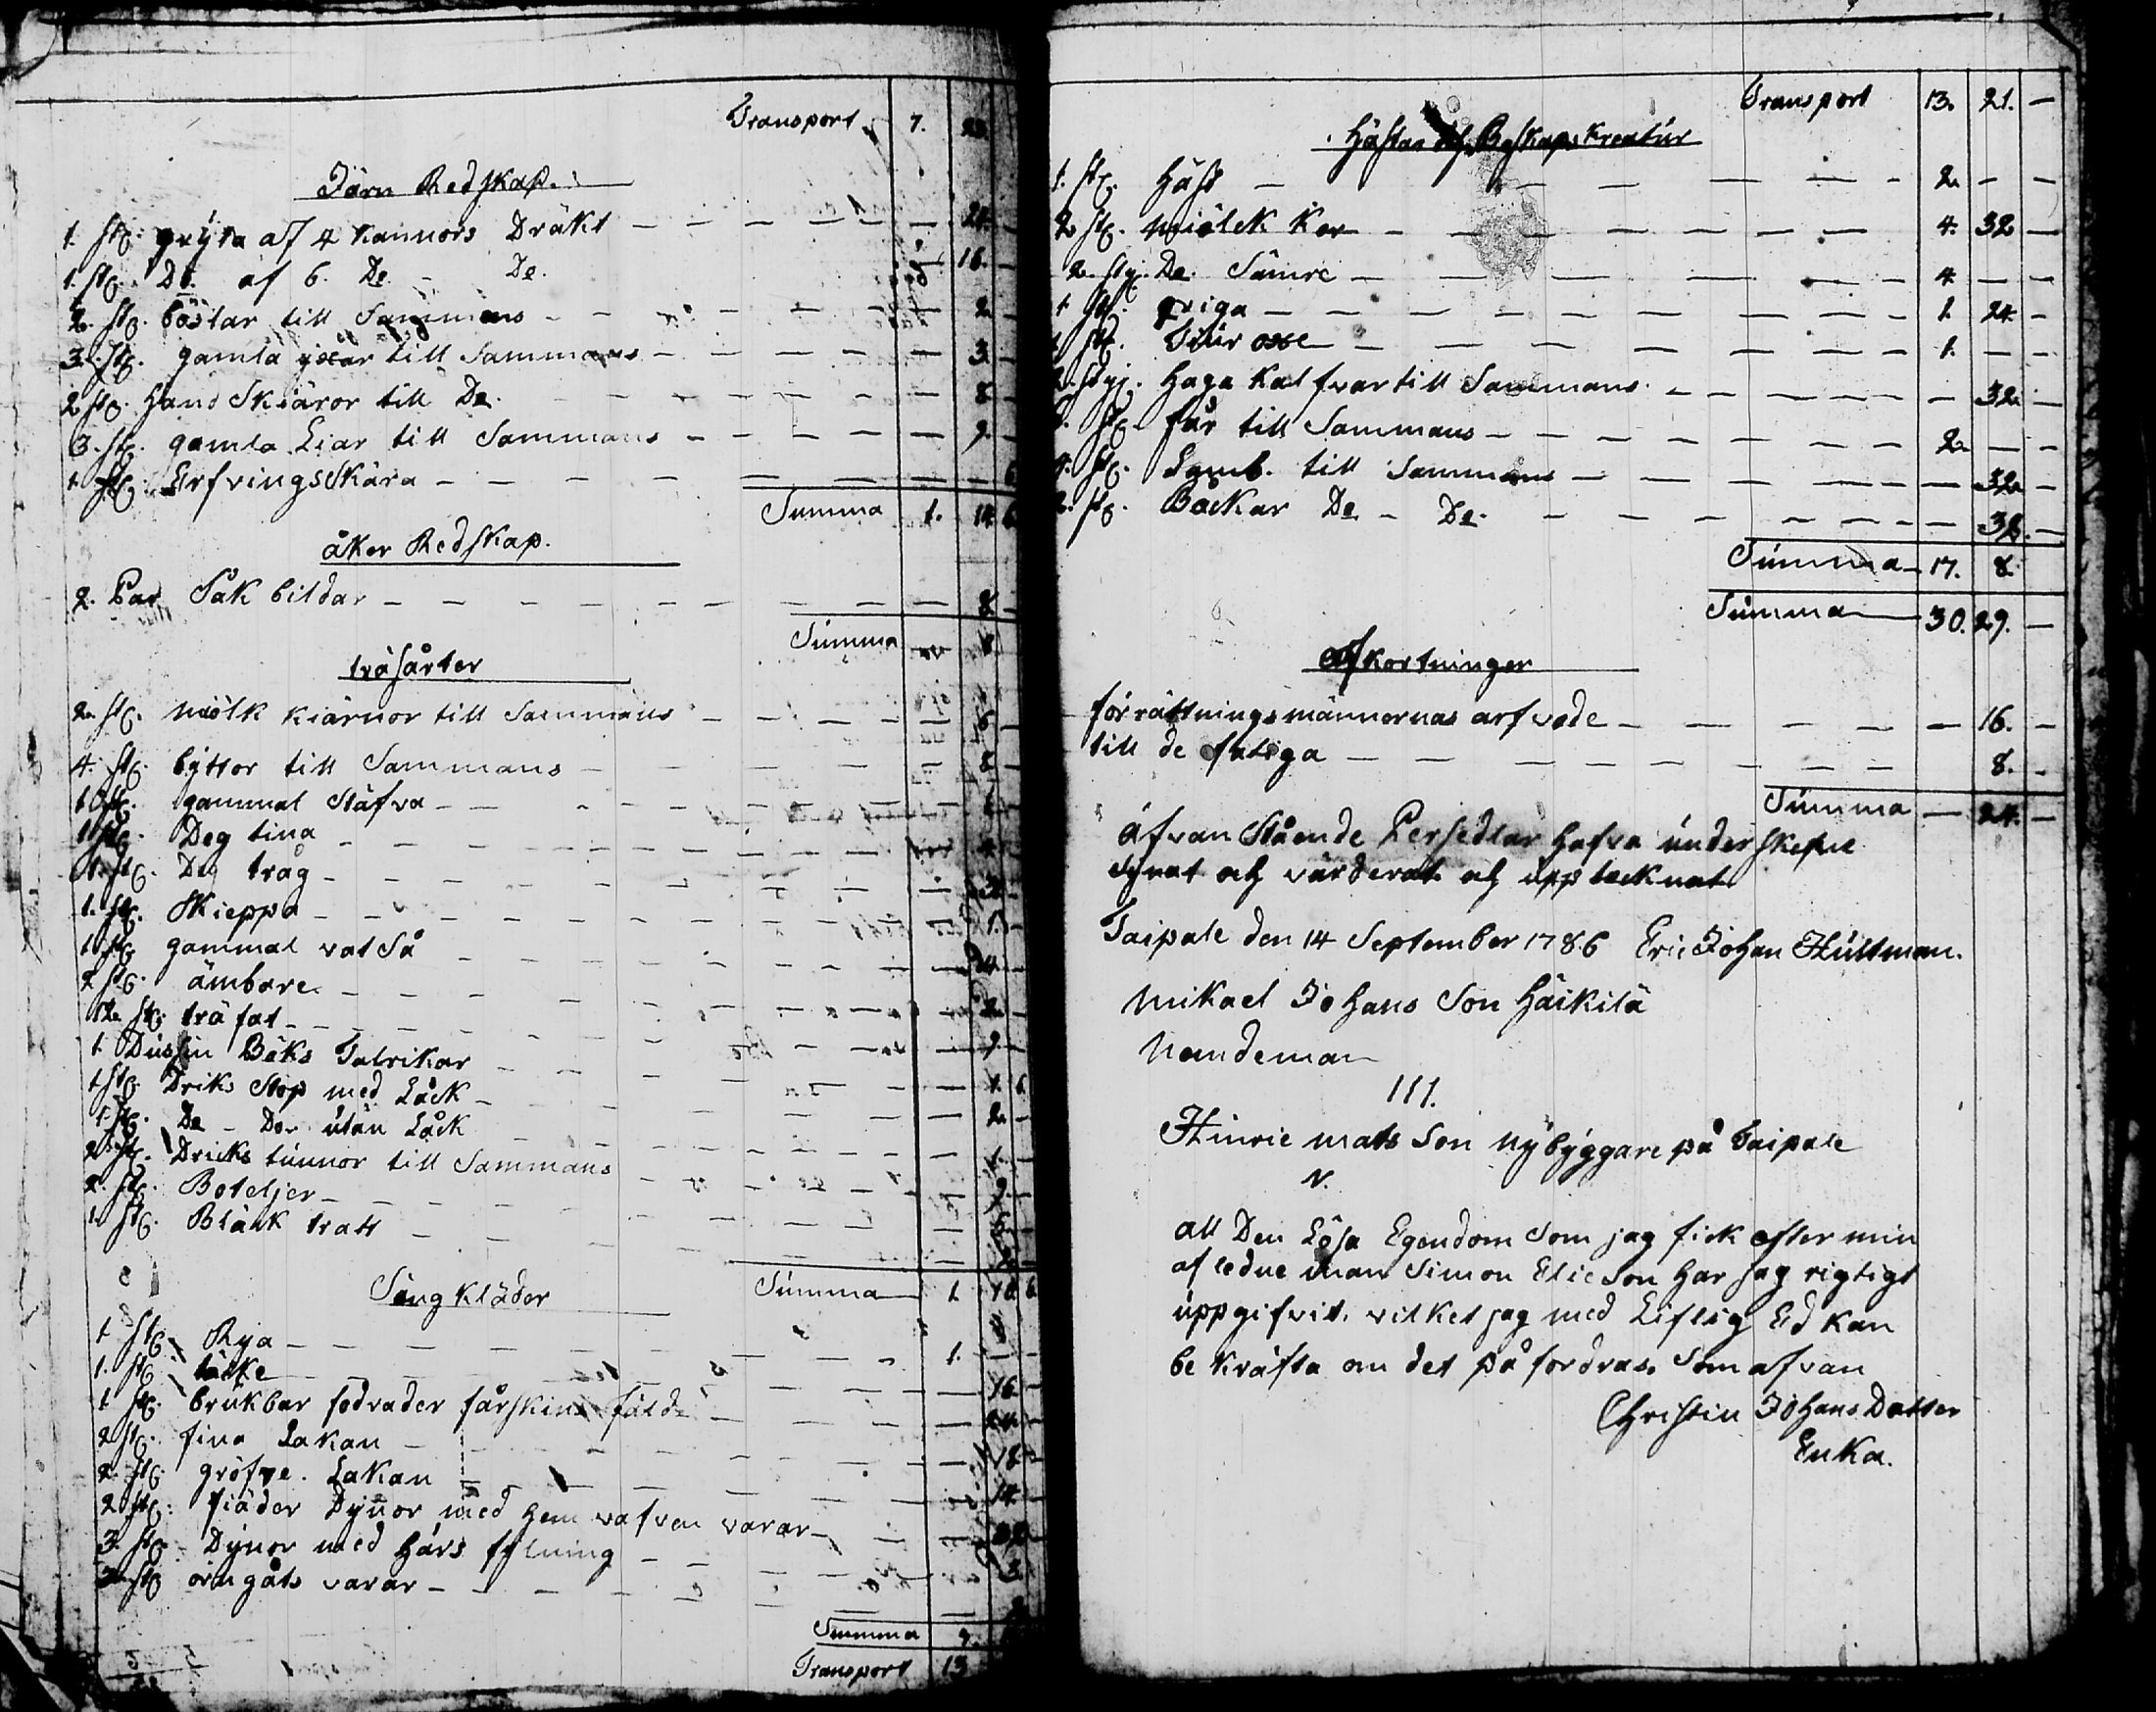 Transport 7. 23.
Järn Redskap.
1. st. gryta af 4 kannors Dräkt — 24. —
1. st. Do. af 6. Do — Do. 16. —
2. st. böstar till Sammans — 2. —
3. st. gamla yxar till Sammans — 3. —
2 st. Hand Skiäror till Do. — 8 —
3. st. gamla Liar till Sammans — 9. —
1 st. Erfvings Skära — 6
Summa 1. 14 6
åker Redskap.
2. Par Såk bildar — 8 —
Summa — 8
träsårter
2. st. miölk kiärnor till Sammans — 6 —
4. st. byttor till Sammans — 8 —
1 st. gammal Stäfva —
1 st. Deg tina — 4
1. st. Deg tråg — 3 —
1. st. Skieppa — 1. —
1 st. gammal vat Så — 4 —
2 st. ämbare — 2. —
12. st. trä fat — 9 —
1. Dussin Båks Talrikar — 1. 6.
1 st. Driks Stop med Låck — 2. —
1. st. Do — Do utan Låck — 1. —
2. st. Dricks tunnor till Sammans — 9 —
2. st. Boteljer — 6 —
1. st. Bläck tratt —
Säng kläder Summa 1. 10. 6
1 st. Rya — 1. — —
1. st. täcke — 16 —
1 st. brukbar fodrader fårskins fäld — 24 —
2 st. fina Lakan — 18 —
2. st. gröfve. Lakan — 14 —
2 st. fiäder Dynor med hem vafven varar — 32 —
3. st. Dynor med hårs fylning — 3.
2 st. örngåts varar —
Summa
Transport 13
Transport 13. 21. —
Hästar och Boskaps Kreatur
1. st. Häst — 2. — —
2 st. miölck kor — 4. 32 —
2. st. Do. Sämre — 4 — —
1 st. qviga — 1. 24. —
1 st. Tiur oxe — 1. — —
2. st. Haga Kalfvar till Sammans — 32 —
st. får till Sammans — 2 — —
4. st. Lamb. till Sammans — 32 —
2. st. Backar Do — Do. — 32. —
Summa — 17. 8.
Summa — 30. 29. —
Afkortninger
förrättnings männernas arfvode — 16. —
till de fatiga — 8. —
Summa — 24. —
åfvan Stående Persedlar hafva under skefne
Synat och värderat och upp tecknat
Taipale den 14 September 1786 Eric Johan Hultman.
Mikael Johans Son Häikilä
Nemdeman
111.
Hinric mats Son Nybyggare på Taipale
N.
all Den Lösa Egendom Som jag fick efter min
afledne man Simon Eric Son har jag rigtigt
uppgifvit, vilket jag med Liflig Ed kan
be kräfta om det på fordras, Som afvan
Christin Johans Dotter
Enka.